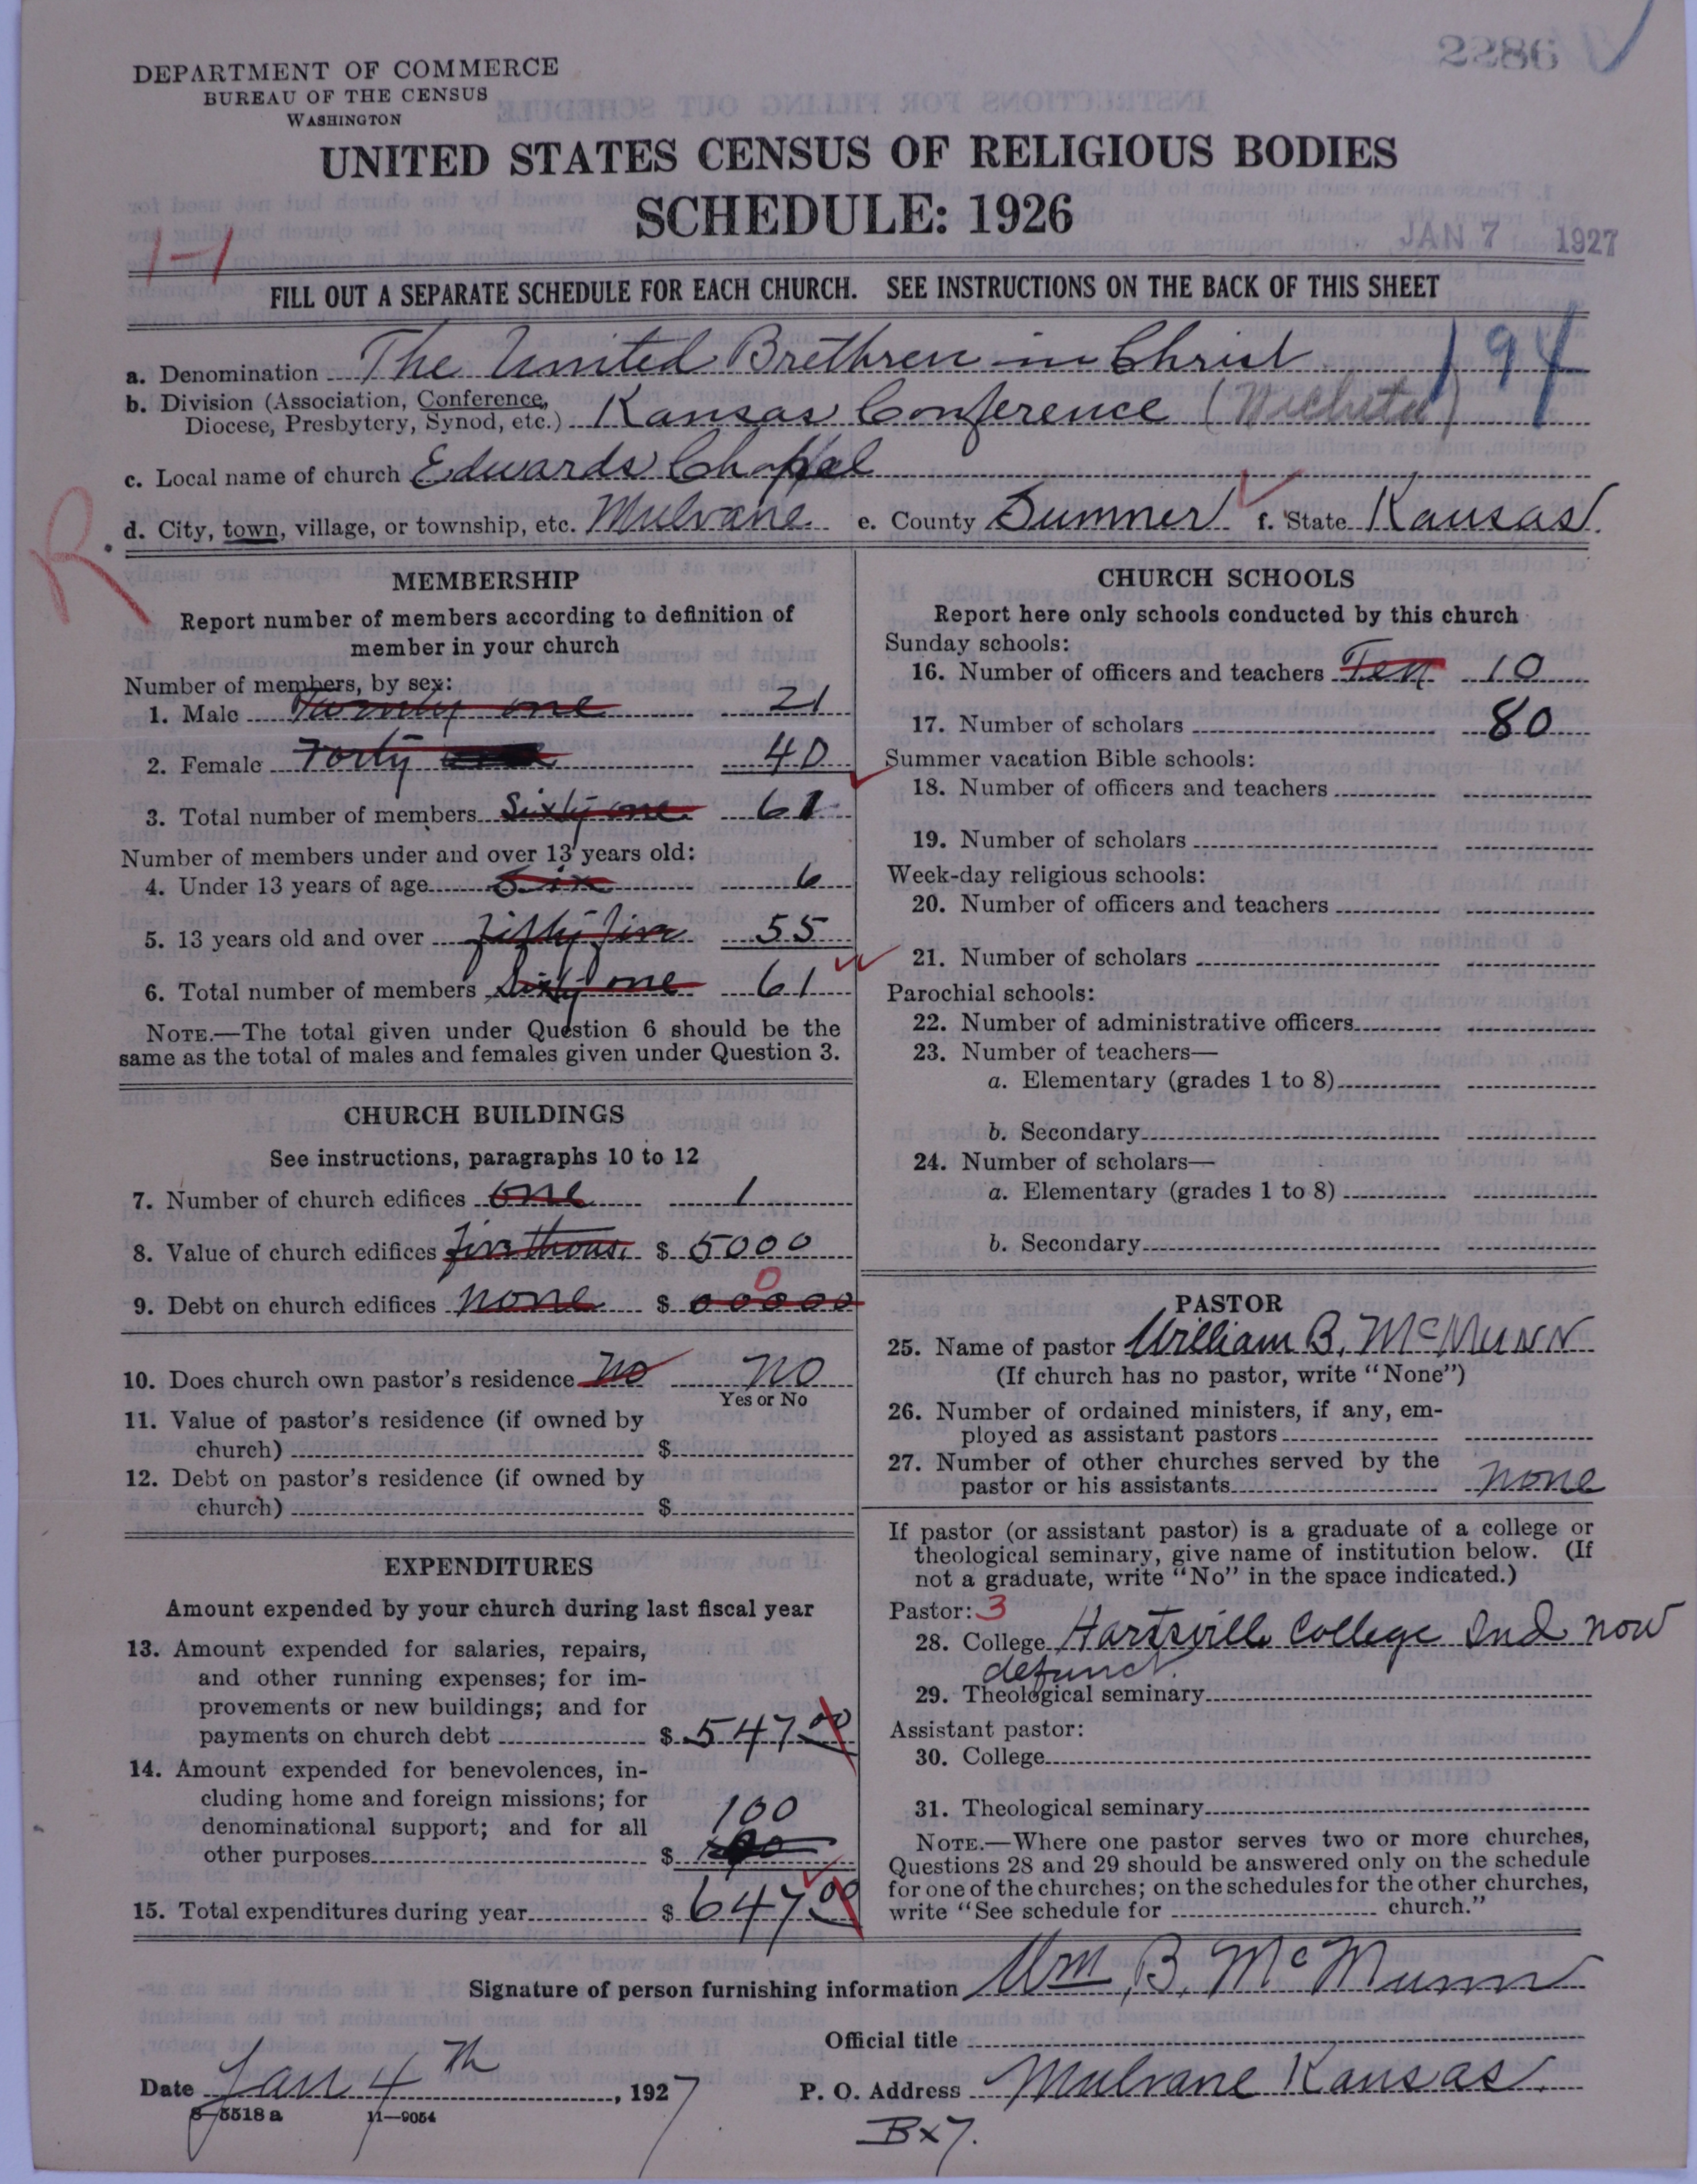 2286
DEPARTMENT OF COMMERCE
BUREAU OF THE CENSUS
WASHINGTON
UNITED STATES CENSUS OF RELIGIOUS BODIES
SCHEDULE: 1926
JAN 7 1927
1-1
FILL OUT A SEPARATE SCHEDULE FOR EACH CHURCH. SEE INSTRUCTIONS ON THE BACK OF THIS SHEET
194
a. Denomination The United Brethren in Christ
b. Division (Association, Conference, Diocese, Presbytery, Synod, etc.) Kansas Conference (Wichita)
c. Local name of church Edwards Chapel
d. City, town, village, or township, etc. Mulvane e. County Sumner f. State Kansas.
R.
MEMBERSHIP
Report number of members according to definition of
member in your church
Number of members, by sex:
1. Male Twenty one 21
2. Female Forty 40
3. Total number of members Sixty one 61
Number of members under and over 13 years old:
4. Under 13 years of age Six 6
5. 13 years old and over fifty five 55
6. Total number of members Sixty one 61
NOTE.—The total given under Question 6 should be the
same as the total of males and females given under Question 3.
CHURCH BUILDINGS
See instructions, paragraphs 10 to 12
7. Number of church edifices one 1
8. Value of church edifices five thous. $ 5000
0
9. Debt on church edifices none $ 00000
10. Does church own pastor's residence no no
Yes or No
11. Value of pastor's residence (if owned by
church) $
12. Debt on pastor's residence (if owned by
church) $
EXPENDITURES
Amount expended by your church during last fiscal year
13. Amount expended for salaries, repairs,
and other running expenses; for im-
provements or new buildings; and for
payments on church debt $ 547 00
14. Amount expended for benevolences, in-
cluding home and foreign missions; for
denominational support; and for all 100
other purposes $
15. Total expenditures during year $ 647 00
CHURCH SCHOOLS
Report here only schools conducted by this church
Sunday schools:
16. Number of officers and teachers Ten 10
17. Number of scholars 80
Summer vacation Bible schools:
18. Number of officers and teachers
19. Number of scholars
Week-day religious schools:
20. Number of officers and teachers
21. Number of scholars
Parochial schools:
22. Number of administrative officers
23. Number of teachers—
a. Elementary (grades 1 to 8)
b. Secondary
24. Number of scholars—
a. Elementary (grades 1 to 8)
b. Secondary
PASTOR
25. Name of pastor William B. McMunn
(If church has no pastor, write "None")
26. Number of ordained ministers, if any, em-
ployed as assistant pastors
27. Number of other churches served by the
pastor or his assistants none
If pastor (or assistant pastor) is a graduate of a college or
theological seminary, give name of institution below. (If
not a graduate, write "No" in the space indicated.)
Pastor: 3
28. College Hartsville College Ind now
defunct.
29. Theological seminary
Assistant pastor:
30. College
31. Theological seminary
NOTE.—Where one pastor serves two or more churches,
Questions 28 and 29 should be answered only on the schedule
for one of the churches; on the schedules for the other churches,
write "See schedule for church."
Signature of person furnishing information Wm. B. McMunn
Official title
Date Jan 4th, 1927 P. O. Address Mulvane Kansas.
8—5518 a 11—9054
Bx 7.